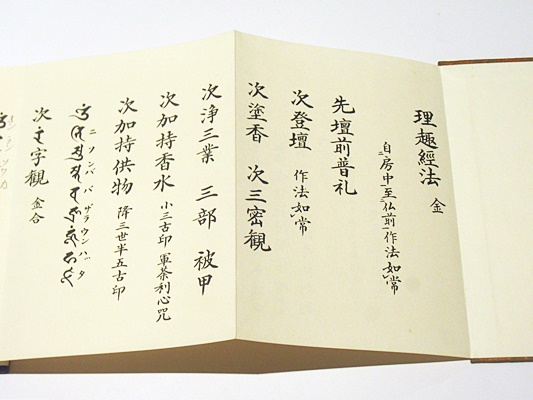 理趣經法 金
自房中至仏前作法如常
先壇前普礼
次登壇 作法如常
次塗香 次三密観
次浄三業 三部 被甲
次加持香水 小三古印 軍荼利心咒
次加持供物 降三世半五古印
ニソンババザラウンハッタ
次字觀 金合